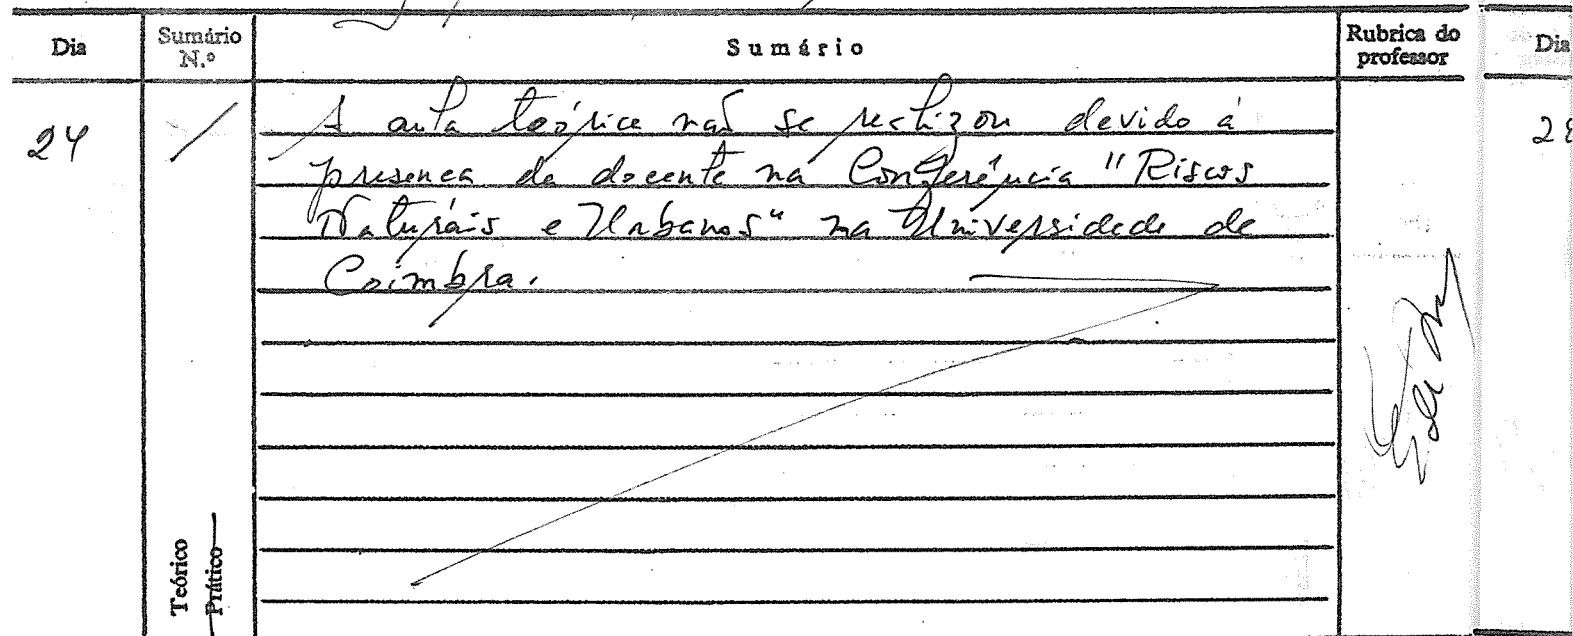 Dia Sumário N.º Sumário Rubrica do professor Dia
24 / A aula teórica não se realizou devido à
presença da docente na Conferência "Riscos
Naturais e Urbanos" na Universidade de
Coimbra.
Teórico
Prático